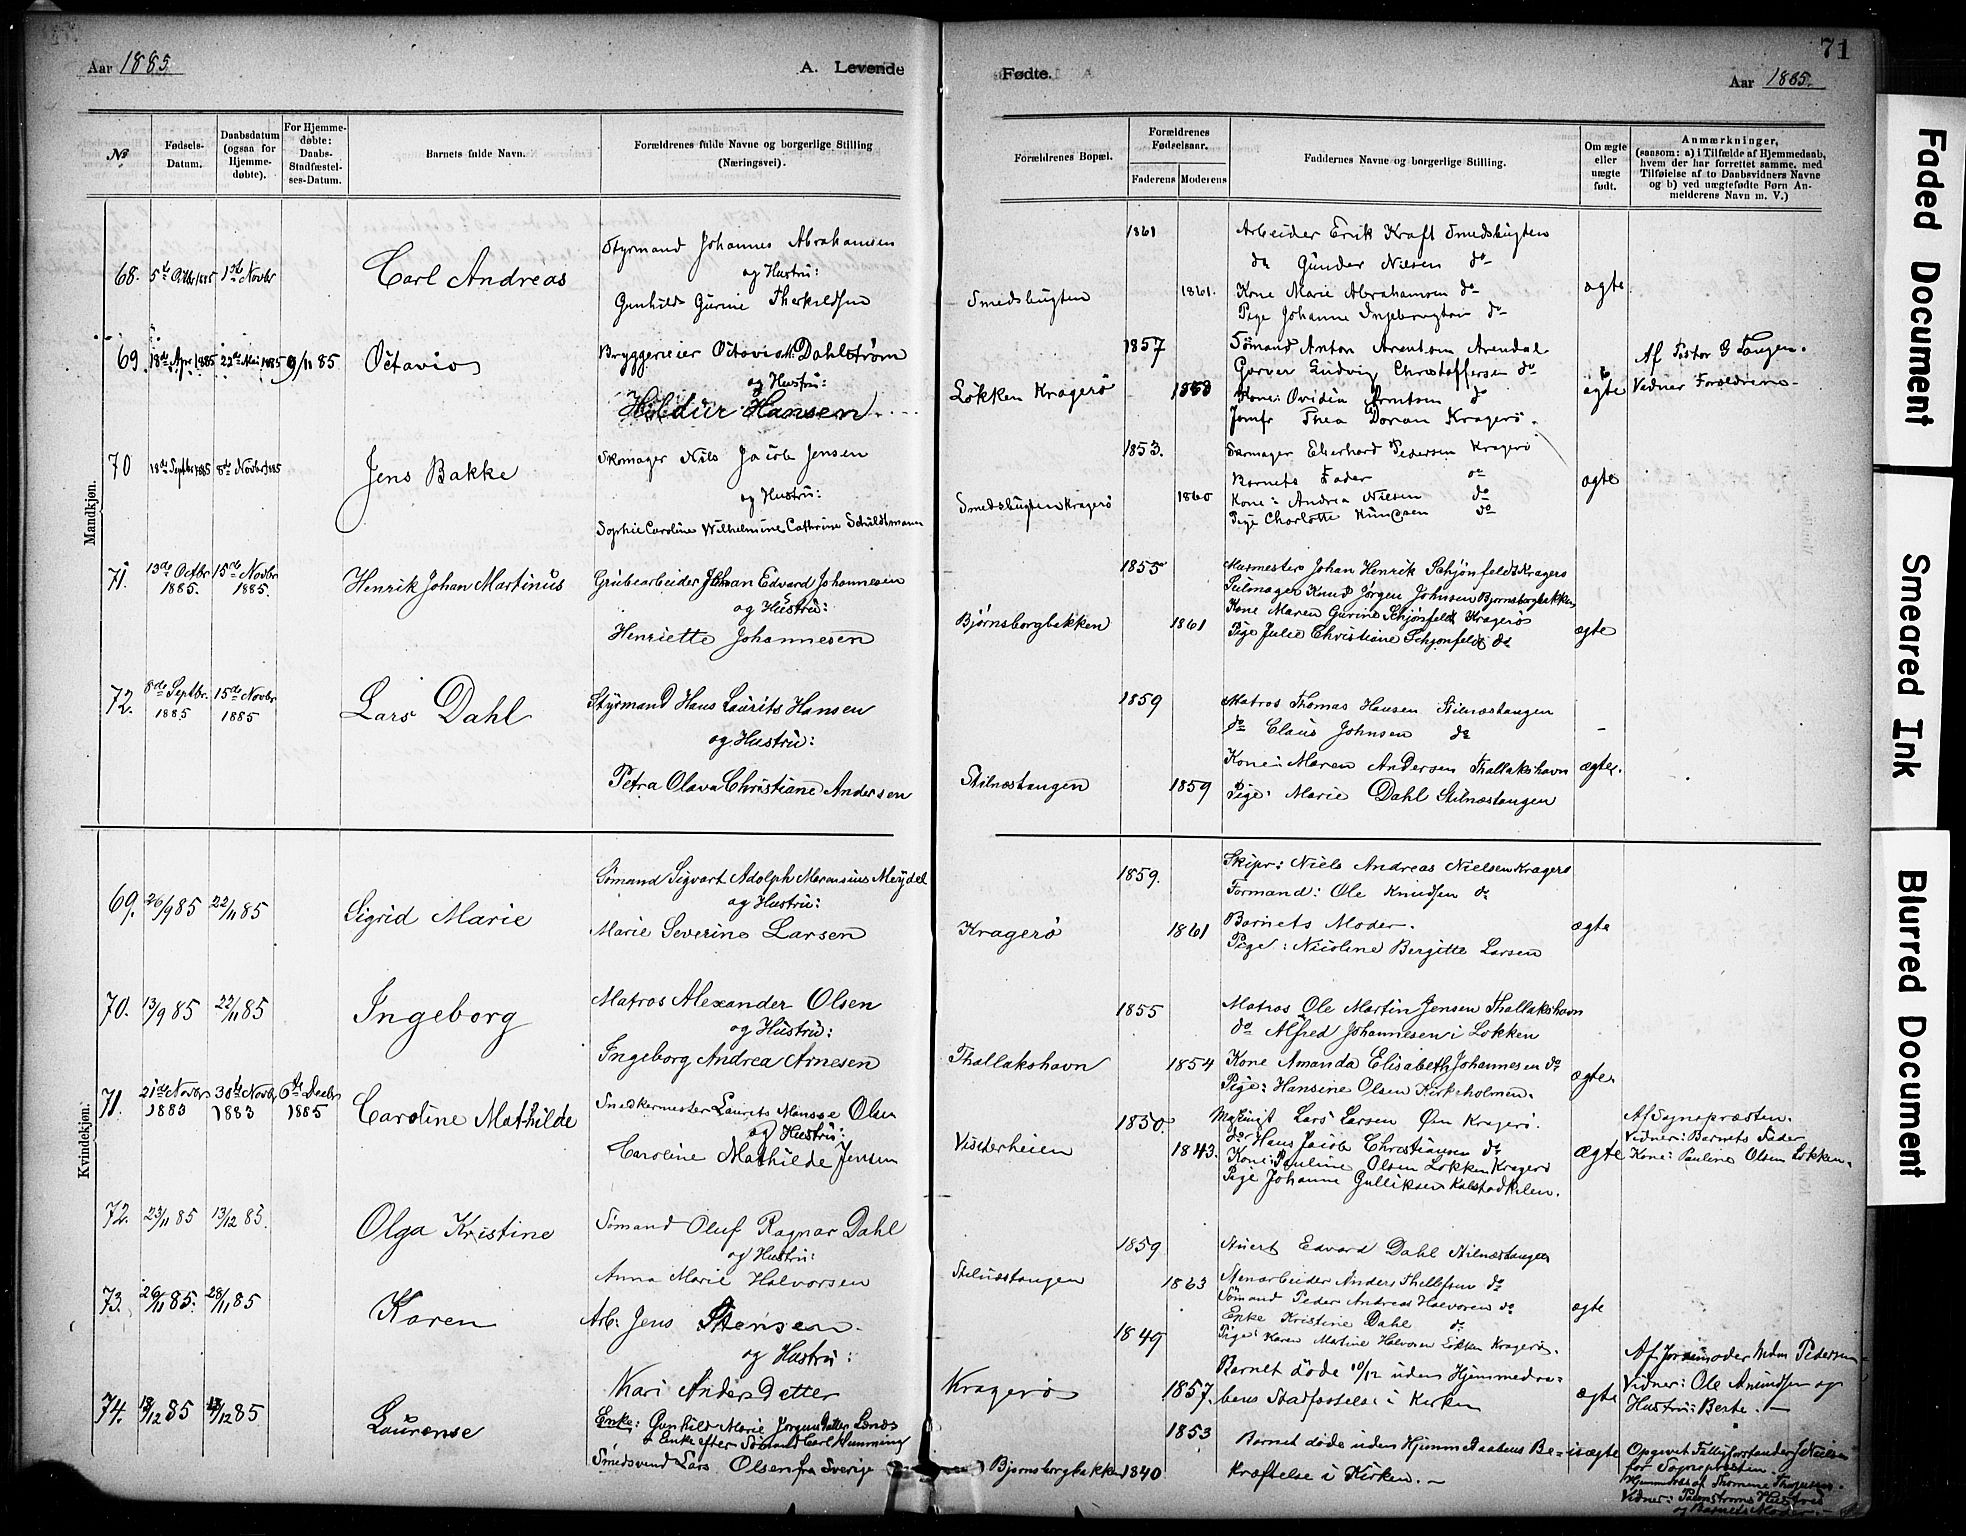 71
Aar 1885.
A. Levende
Fødte.
Aar 1885.
№
Fødsels-Datum.
Daabsdatum (ogsaa for Hjemme-døbte).
For Hjemme-døbte: Daabs-Stadfæstel-ses-Datum.
Barnets fulde Navn.
Forældrenes fulde Navne og borgerlige Stilling (Næringsvei).
Forældrenes Bopæl.
Forældrenes Fødselsaar.
Faderens
Moderens
Faddernes Navne og borgerlige Stilling.
Om ægte eller uægte født.
Anmærkninger,
(saasom: a) i Tilfælde af Hjemmedaab,
hvem der har forrettet samme, med
Tilføielse af to Daabsvidners Navne
og b) ved uægtefødte Børn An-
melderens Navn m. V.)
Mandkjøn.
68. 5te Octbr 1885 1ste Novbr
Carl Andreas
Styrmand Johannes Abrahamsen
og Hustru:
Gunhild Gurine Therkildsen
Smedsbugten
1861
1861.
Arbeider Erik Kraft Smedsbugten
do Gunder Nilsen do
Kone Marie Abrahamsen do
Pige Johanne Ingebregtsen do
ægte
69. 18de Apr 1885 22de Mai 1885 9/11 85
Octavio
Bryggerieier Octavis Dahlstrøm
og Hustru:
Hildur Hansen
Løkken Kragerö
1857
1858
Sømand Anton Arentsen Arendal
Garver Ludvig Christoffersen do
Kone: Ovidia Arntsen do
Jomfr Thea Doran Kragerö.
ægte
Af Pastor G Langen.
Vidner Forældrene
70 18de Septbr 1885 8de Novbr 1885
Jens Bakke
Skomager Nils Jacob Jensen
og Hustru:
Sophie Caroline Wilhelmine Cathrine Schuldtmann
Smedsbugten Kragerö
1853.
1860
Skomager Eberhard Pedersen Kragerö
Barnets Fader do
Kone: Andrea Nilsen do
Pige Charlotte do
ægte
71. 13de Octbr 1885. 15de Novbr 1885.
Henrik Johan Martinus
Grubearbeider Johan Edvard Johannesen
og Hustru:
Henriette Johannesen
Bjørnsborgbakken
1855
1861
Murmester Johan Henrik Schjønfeldt Kragerø
Seilmager Knud Jørgen Johnsen Bjornsborgbakken
Kone Maren Gurine Schjønfeldt Kragerø
Pige Julie Christiane Schjonfeldt do
ægte
72. 8de Septbr. 1885 15de Novbr 1885
Lars Dahl
Styrmand Hans Laurits Hansen
og Hustru:
Petra Olava Christiane Andersen
Stilnæstangen
1859
1859
Matros Thomas Hansen Stilnæstangen
do Claus Johnsen do
Kone: Maren Andersen Thallakshavn
Pige: Marie Dahl Stilnæstangen
ægte.
Kvindekjøn.
69. 26/9 85 22/11 85
Sigrid Marie
Sømand Sigvart Adolph Marensius Meydel
og Hustru:
Marie Severine Larsen
Kragerö
1859.
1861
Skipr: Niels Andreas Nielsen Kragerø
Formand: Ole Knudsen do
Barnets Moder.
Pige: Nicoline Bergitte Larsen
ægte
70. 13/9 85 22/11 85
Ingeborg
Matros Alexander Olsen
og Hustru:
Ingeborg Andrea Arnesen
Thallakshavn
1855
1854
Matros Ole Martin Jensen Thallakshavn
do Alfred Johannesen i Løkken
Kone Amanda Elisabeth Johannesen do
Pige: Hansine Olsen Kirkeholmen.
ægte
71. 21de Novbr 1883 30te Novbr 1883 6te Decbr 1885
Caroline Mathilde
Snedkermester Laurits Olsen
og Hustru:
Caroline Mathilde Jensen
Visterheien
1850.
1843.
Lars Larsen Øen Kragerö.
do Hans Jacob Christiansen do
Kone: Pauline Olsen Løkken Kragerö
Pige Johanne Gulliksen Kalstadkilen.
ægte
Af Sognepræsten.
Vidner: Barnets Fader
Kone: Pauline Olsen Løkken.
72. 23/11 85 13/12 85.
Olga Kristine
Sømand Oluf Ragnar Dahl
og Hustru:
Anna Marie Halvorsen
Stilnæstangen
1859
1863
Stuert Edvard Dahl Stilnæstangen
Stenarbeider Anders Thellefsen do
Sømand Peder Andreas Halvorsen do
Enke Kristine Dahl do
Pige: Karen Matine Halvorsen Løkken Kragerö.
ægte
73. 26/11 85. 28/11 85
Karen
Arb: Jens Stensen
og Hustru:
Kari AndersDatter
Kragerö
1849
1857.
Barnet døde 10/12 uden Hjemmedaa-
bens Stadfæstelse i Kirken
ægte
Af Jordmoder Pedersen
Vidner: Ole Amundsen og
Hustru: Berte.
74. 12/12 85
Laurense
Enke: Gunhild Marie JørgensDatter
Enke efter Sømand Carl Hemming
Smedsvend Lars Olsen fra Sverige
Bjørnsborgbakken
1853
1840
Barnet døde uden Hjemmedaabens Be-
kræftelse i Kirken.
uægte
Opgivet Fattigforstander J Nielsen
for Sognepræsten.
Vidner: Hustru
og Barnets Moder.
Faded Document
Smeared Ink
Blurred Document